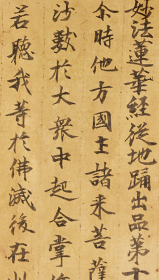 妙法蓮華經從地踊出品第十
尒時他方國土諸来菩薩
沙數於大衆中起合掌
若聽我等於佛滅後在